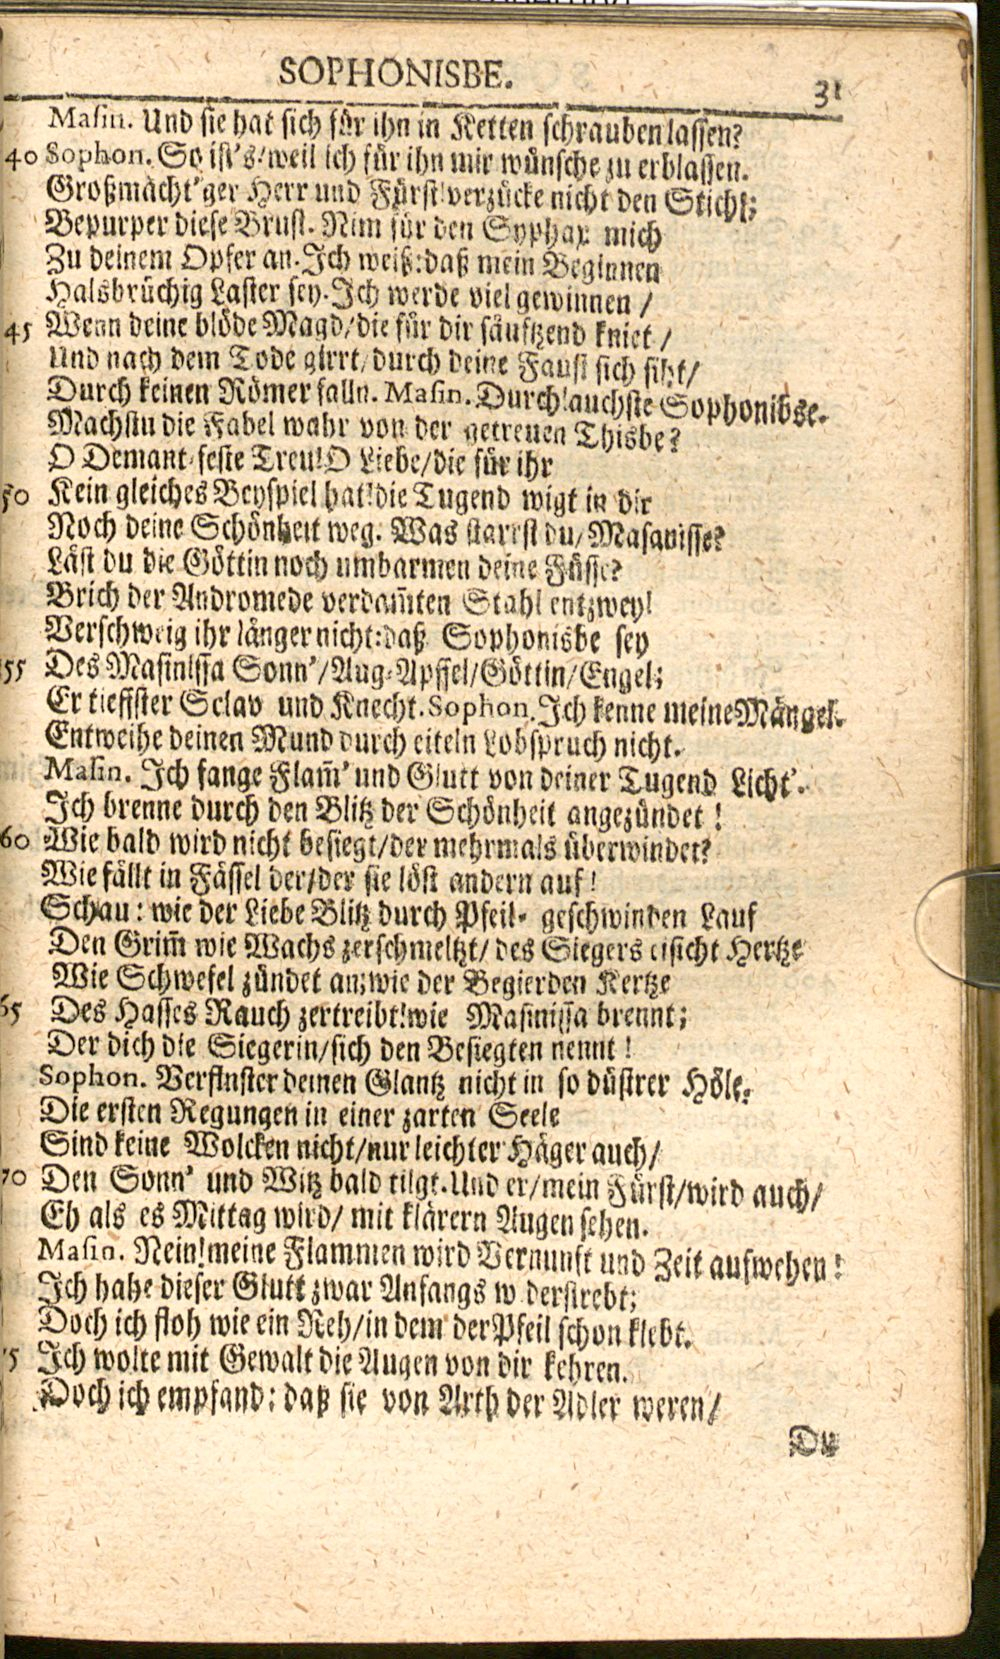 SOPHONISBE. 31
Masin. Und sie hat sich für ihn in Ketten schrauben lassen?
40 Sophon. So ist's/weil ich für ihn mir wünsche zu erblassen.
Großmächt'ger Herr und Fürst! verzücke nicht den Stich!;
Bepurper diese Brust. Nim für den Syphax mich
Zu deinem Opfer an. Ich weiß: daß mein Beginnen
Halsbrüchig Laster sey. Ich werde viel gewinnen /
45 Wenn deine blöde Magd/die für dir säufftzend kniet /
Und nach dem Tode girrt/durch deine Faust sich siht/
Durch keinen Römer falln. Masin. Durchlauchste Sophonibse.
Machstu die Fabel wahr von der getreuen Thisbe?
O Demant-feste Treu! O Liebe/die für ihr
50 Kein gleiches Beyspiel hat! die Tugend wigt in dir
Noch deine Schönheit weg. Was starrst du/Masanisse?
Läst du die Göttin noch umbarmen deine Füsse?
Brich der Andromede verdam̃ten Stahl entzwey!
Verschweig ihr länger nicht: daß Sophonisbe sey
55 Des Masinissa Sonn'/Aug-Apffel/Göttin/Engel;
Er tieffster Sclav und Knecht. Sophon. Ich kenne meine Mängel.
Entweihe deinen Mund durch eiteln Lobspruch nicht.
Masin. Ich fange Flam̃' und Glutt von deiner Tugend Licht'.
Ich brenne durch den Blitz der Schönheit angezündet!
60 Wie bald wird nicht besiegt/der mehrmals überwindet?
Wie fällt in Fässel der/der sie löst andern auf!
Schau: wie der Liebe Blitz durch Pfeil- geschwinden Lauf
Den Grim̃ wie Wachs zerschmeltzt/ des Siegers eisicht Hertze
Wie Schwefel zündet an; wie der Begierden Kertze
65 Des Hasses Rauch zertreibt! wie Masinissa brennt;
Der dich die Siegerin/sich den Besiegten nennt!
Sophon. Verfinster deinen Glantz nicht in so düstrer Höle.
Die ersten Regungen in einer zarten Seele
Sind keine Wolcken nicht/nur leichter Häger auch/
70 Den Sonn' und Witz bald tilgt. Und er/mein Fürst/wird auch/
Eh als es Mittag wird/ mit klärern Augen sehen.
Masin. Nein! meine Flammen wird Vernunft und Zeit aufwehen!
Ich habe dieser Glutt zwar Anfangs w derstrebt;
Doch ich floh wie ein Reh/in dem der Pfeil schon klebt.
75 Ich wolte mit Gewalt die Augen von dir kehren.
Doch ich empfand: daß sie von Arth der Adler weren/
Du